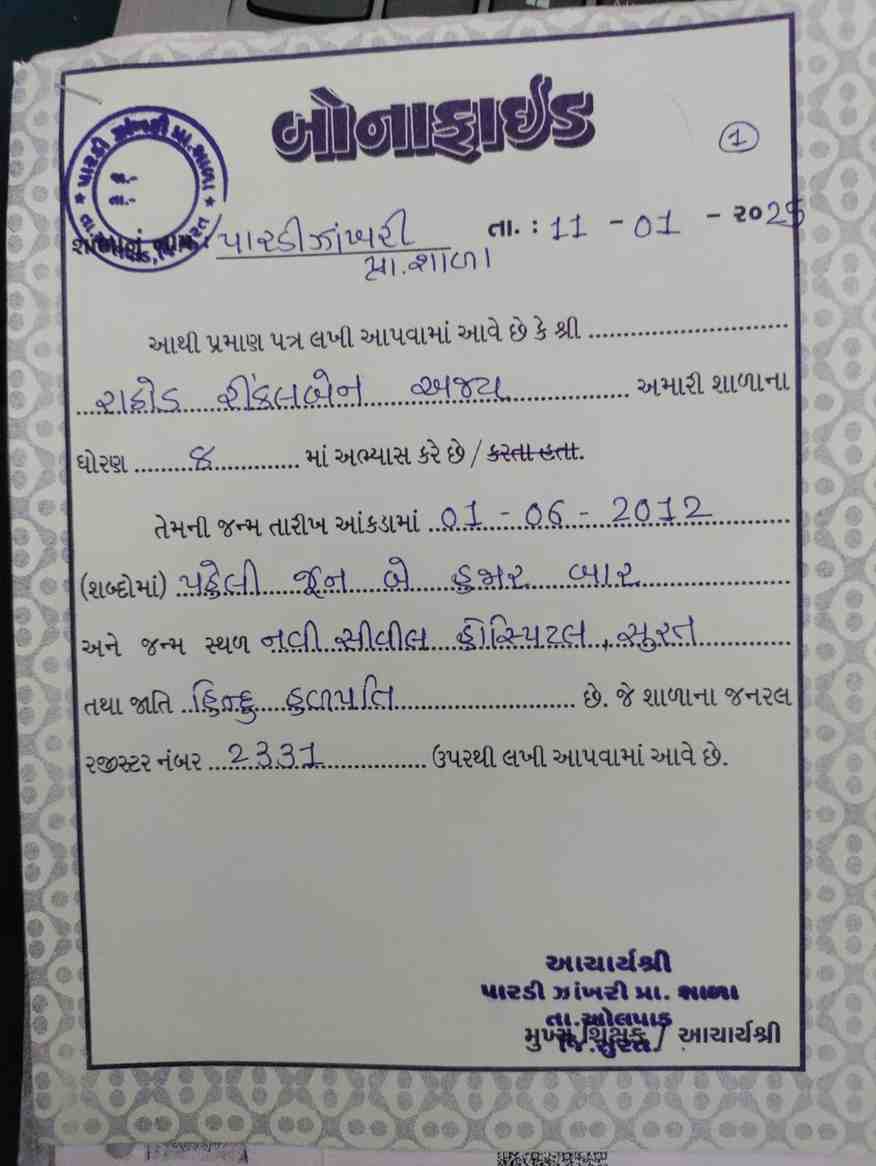 બોનાફાઈડ
1
પારડી ઝાંખરી પ્રા. શાળા
જા.-
તા.-
શાળાનું નામ : પારડીઝાંખરી તા. : 11 - 01 - ૨૦25
પ્રા. શાળા
આથી પ્રમાણ પત્ર લખી આપવામાં આવે છે કે શ્રી ..............................
રાઠોડ રીંકલબેન અજય અમારી શાળાના
ધોરણ 8 માં અભ્યાસ કરે છે / કરતા હતા.
તેમની જન્મ તારીખ આંકડામાં 01 - 06 - 2012
(શબ્દોમાં) પહેલી જૂન બે હજાર બાર
અને જન્મ સ્થળ નવી સીવીલ હોસ્પિટલ, સુરત
તથા જાતિ હિન્દુ હળપતિ છે. જે શાળાના જનરલ
રજીસ્ટર નંબર 2331 ઉપરથી લખી આપવામાં આવે છે.
આચાર્યશ્રી
પારડી ઝાંખરી પ્રા. શાળા
તા.ઓલપાડ
જિ.સુરત
મુખ્ય શિક્ષક / આચાર્યશ્રી